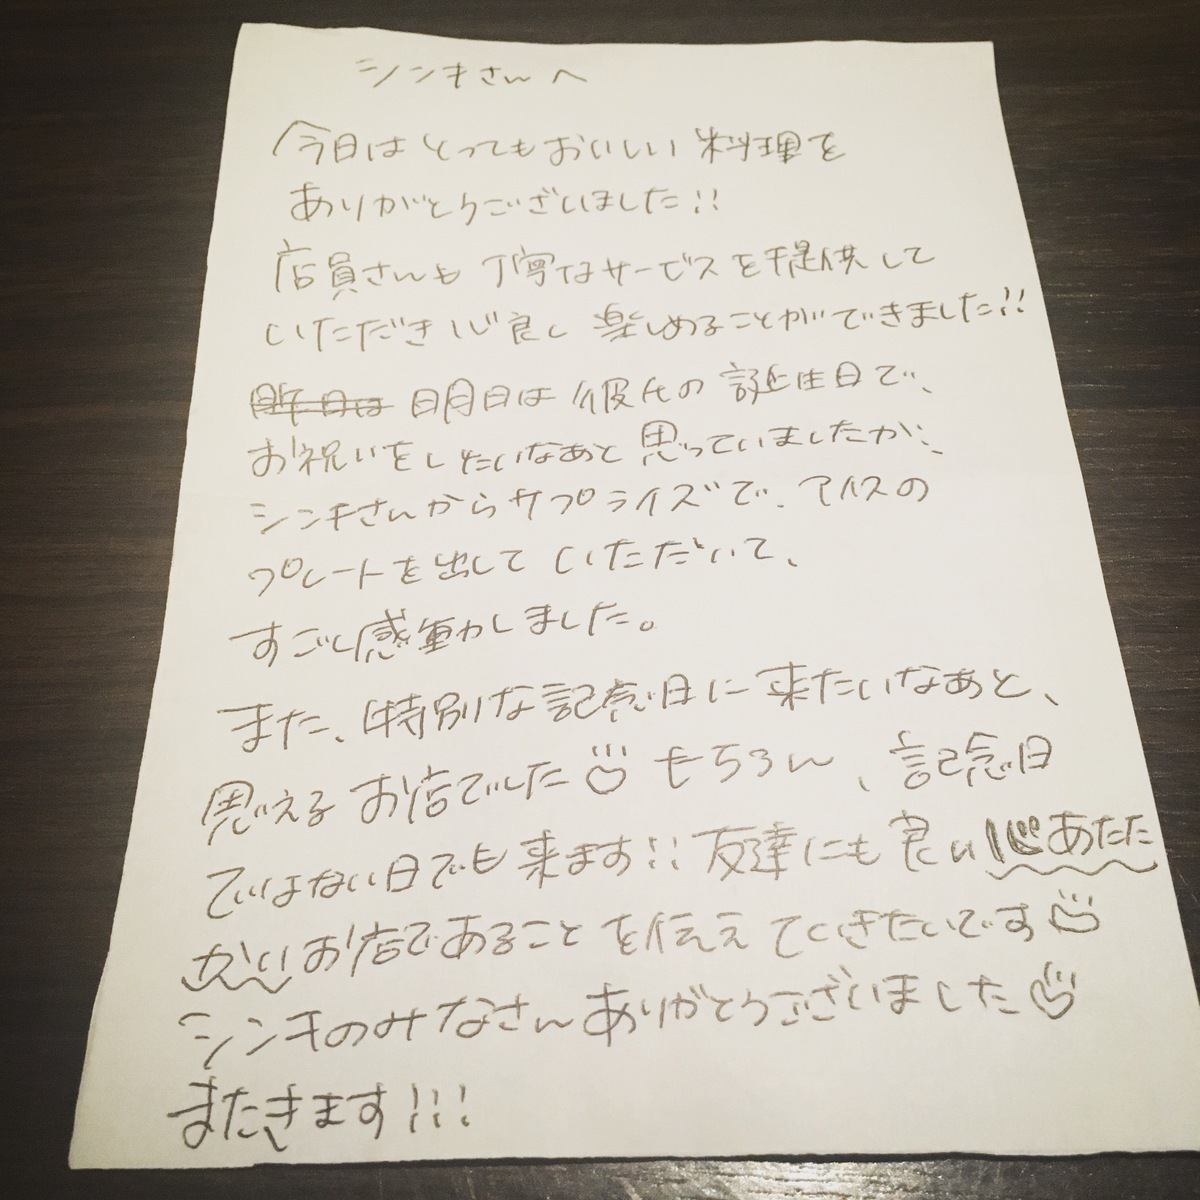 シンキさんへ
今日はとってもおいしい料理を
ありがとうございました!!
店員さんも丁寧なサービスを提供して
いただき心良し楽しめることができました!!
昨日は 明日は彼氏の誕生日で、
お祝いをしたいなあと思っていましたが、
シンキさんからサプライズで、アイスの
プレートを出していただいて、
すごく感動しました。
また、特別な記念日に来たいなあと、
思えるお店でした もちろん、記念日
ではない日でも来ます!!友達にも良い心あたた
かいお店であることを伝えていきたいです
シンキのみなさんありがとうございました
またきます!!!